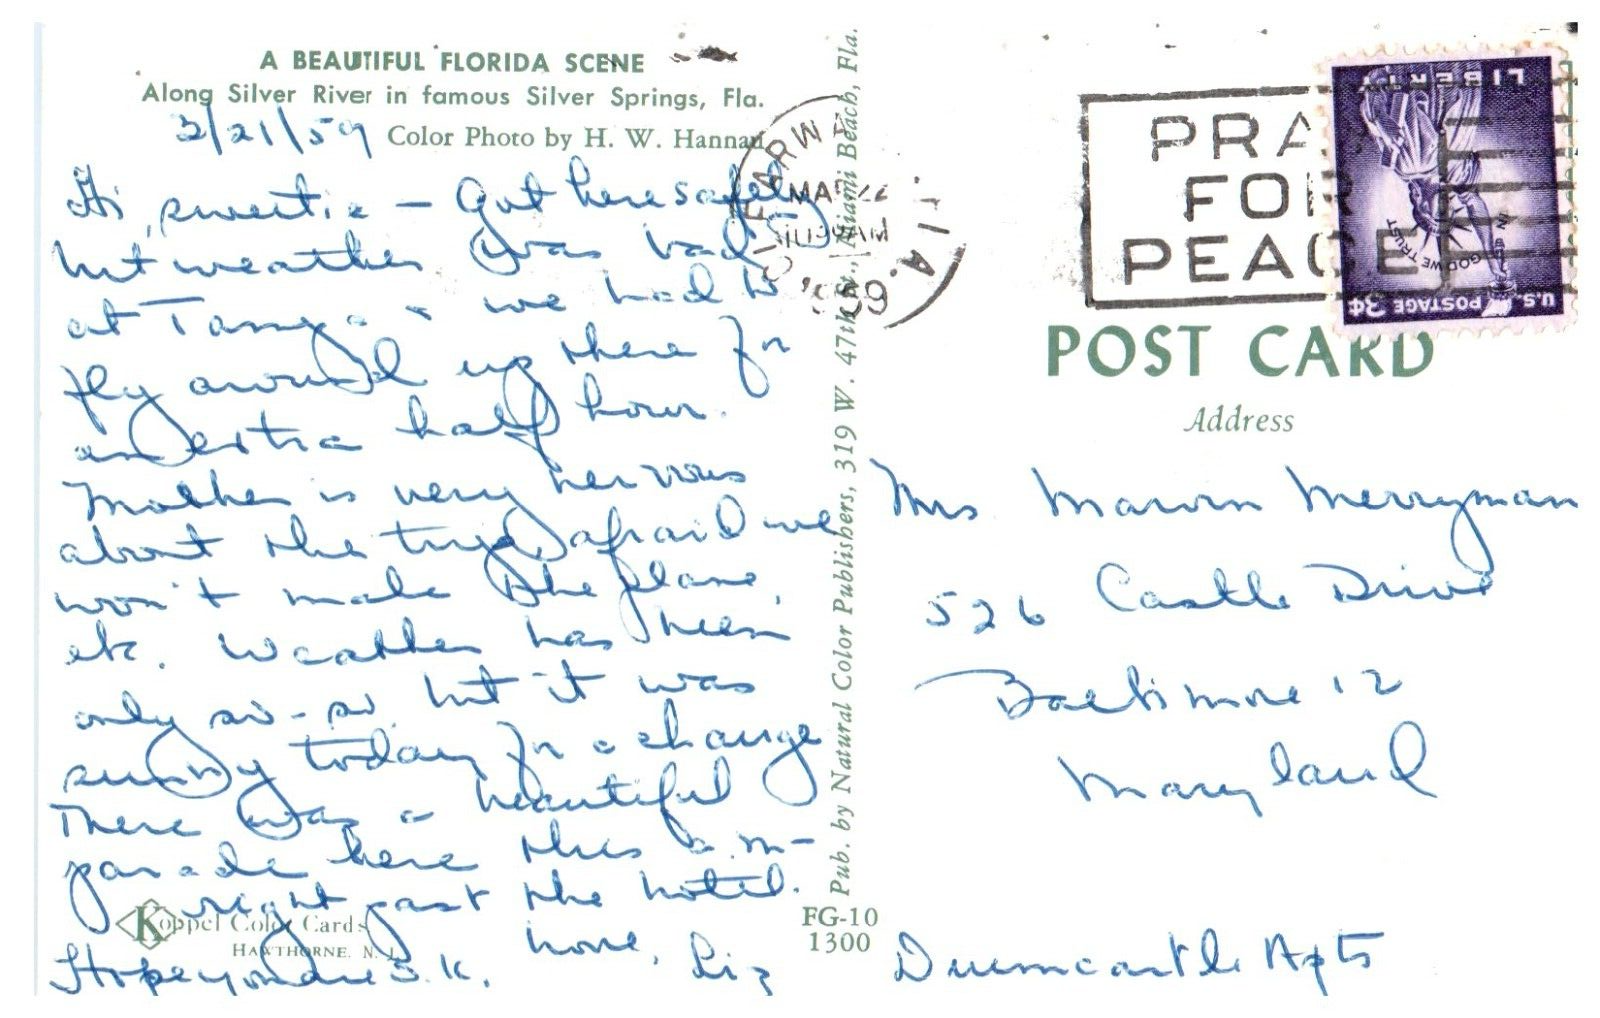 A BEAUTIFUL FLORIDA SCENE
Along Silver River in famous Silver Springs, Fla.
3/21/59
Color Photo by H. W. Hannau
Hi, sweetie - Got here safely
but weather was bad
at Tampa & we had to
fly around up there for
an extra half hour.
Mother is very nervous
about the trip, afraid we
won't make the plane,
etc. Weather has been
only so-so, but it was
sunny today for a change
There was a beautiful
parade here this a.m-
right past the hotel.
Hope you are O.K.
Love, Liz
Koppel Color Cards
HAWTHORNE, N. J.
Pub. by Natural Color Publishers, 319 W. 47th St., Miami Beach, Fla.
FG-10
1300
CLEARW
MAR 22
AM
1959
FLA.
PRA
FOR
PEACE
LIBERTY
IN GOD WE TRUST
U.S. POSTAGE 3¢
POST CARD
Address
Mrs Marvin Merryman
526 Castle Drive
Baltimore 12
Maryland
Drumcastle Apts